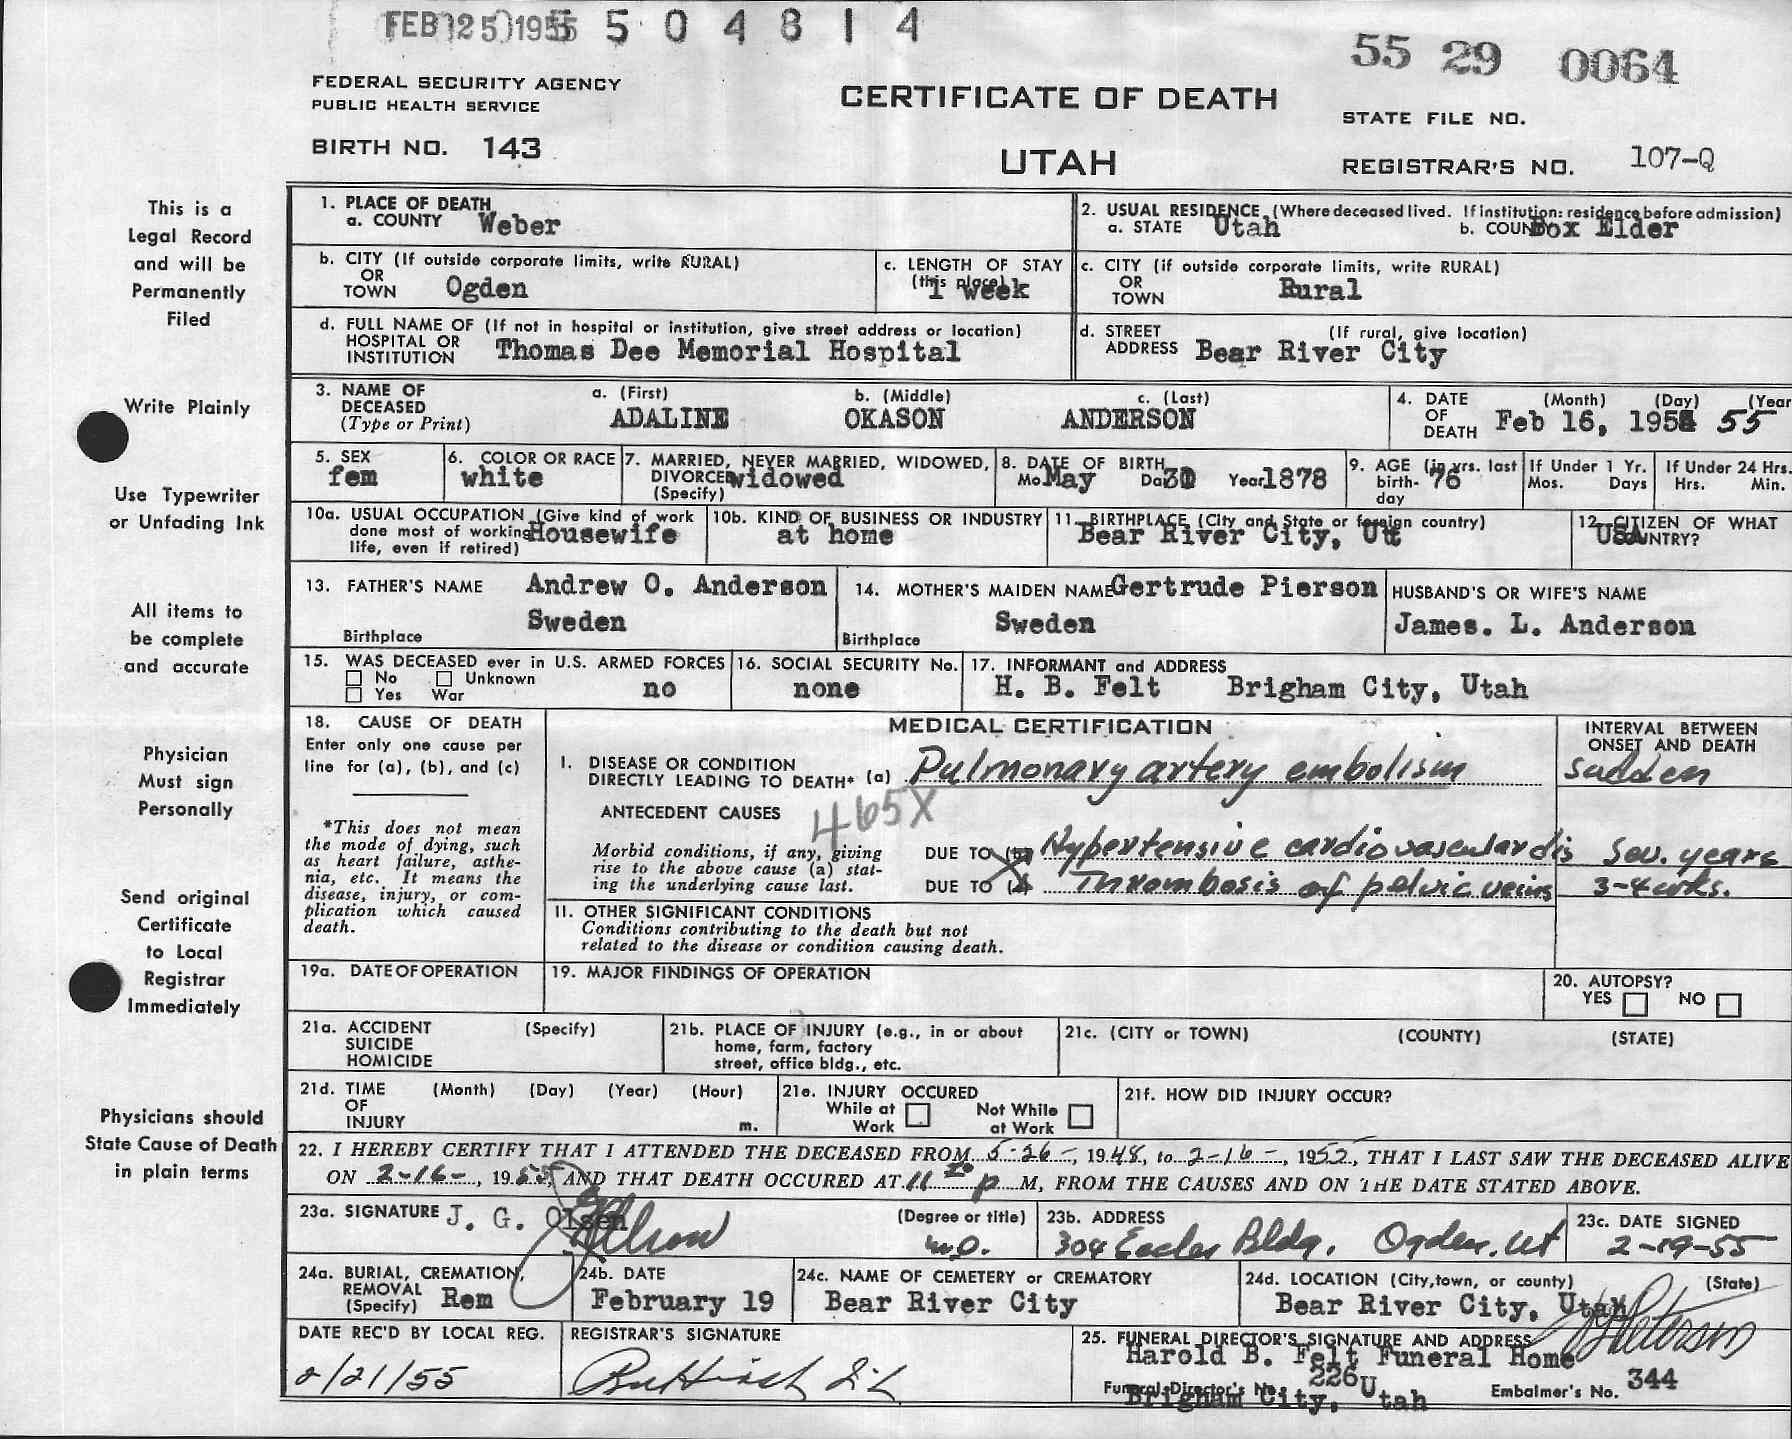 FEB 25 1955 5 5 0 4 8 1 4
55 29 0064
FEDERAL SECURITY AGENCY
PUBLIC HEALTH SERVICE
CERTIFICATE OF DEATH
STATE FILE NO.
BIRTH NO. 143
UTAH
REGISTRAR'S NO. 107-Q
This is a
Legal Record
and will be
Permanently
Filed
Write Plainly
Use Typewriter
or Unfading Ink
All items to
be complete
and accurate
Physician
Must sign
Personally
Send original
Certificate
to Local
Registrar
Immediately
Physicians should
State Cause of Death
in plain terms
1. PLACE OF DEATH
a. COUNTY Weber
2. USUAL RESIDENCE (Where deceased lived. If institution: residence before admission)
a. STATE Utah b. COUN Box Elder
b. CITY (If outside corporate limits, write RURAL)
OR
TOWN Ogden
c. LENGTH OF STAY
(this place) 1 week
c. CITY (if outside corporate limits, write RURAL)
OR
TOWN Rural
d. FULL NAME OF (If not in hospital or institution, give street address or location)
HOSPITAL OR
INSTITUTION Thomas Dee Memorial Hospital
d. STREET (If rural, give location)
ADDRESS Bear River City
3. NAME OF
DECEASED
(Type or Print)
a. (First) b. (Middle) c. (Last)
ADALINE OKASON ANDERSON
4. DATE (Month) (Day) (Year
OF
DEATH Feb 16, 195 55
5. SEX
fem
6. COLOR OR RACE
white
7. MARRIED, NEVER MARRIED, WIDOWED,
DIVORCED widowed
(Specify)
8. DATE OF BIRTH
Mo May Da Year 1878
9. AGE (in yrs. last
birth- 76
day
If Under 1 Yr.
Mos. Days
If Under 24 Hrs.
Hrs. Min.
10a. USUAL OCCUPATION (Give kind of work
done most of working Housewife
life, even if retired)
10b. KIND OF BUSINESS OR INDUSTRY
at home
11. BIRTHPLACE (City and State or foreign country)
Bear River City, Ut
12. CITIZEN OF WHAT
USA UNTRY?
13. FATHER'S NAME Andrew O. Anderson
Sweden
Birthplace
14. MOTHER'S MAIDEN NAME Gertrude Pierson
Sweden
Birthplace
HUSBAND'S OR WIFE'S NAME
James. L. Anderson
15. WAS DECEASED ever in U.S. ARMED FORCES
No Unknown
Yes War no
16. SOCIAL SECURITY No.
none
17. INFORMANT and ADDRESS
H. B. Felt Brigham City, Utah
18. CAUSE OF DEATH
Enter only one cause per
line for (a), (b), and (c)
*This does not mean
the mode of dying, such
as heart failure, asthe-
nia, etc. It means the
disease, injury, or com-
plication which caused
death.
MEDICAL CERTIFICATION
INTERVAL BETWEEN
ONSET AND DEATH
I. DISEASE OR CONDITION
DIRECTLY LEADING TO DEATH* (a) Pulmonary artery embolism sudden
ANTECEDENT CAUSES 465X
Morbid conditions, if any, giving
rise to the above cause (a) stat-
ing the underlying cause last.
DUE TO (b) Hypertensive cardiovascular dis Sev. years
DUE TO Thrombosis of pelvic veins 3-4 wks.
II. OTHER SIGNIFICANT CONDITIONS
Conditions contributing to the death but not
related to the disease or condition causing death.
19a. DATE OF OPERATION
19. MAJOR FINDINGS OF OPERATION
20. AUTOPSY?
YES NO
21a. ACCIDENT (Specify)
SUICIDE
HOMICIDE
21b. PLACE OF INJURY (e.g., in or about
home, farm, factory
street, office bldg., etc.
21c. (CITY or TOWN) (COUNTY) (STATE)
21d. TIME (Month) (Day) (Year) (Hour)
OF
INJURY m.
21e. INJURY OCCURED
While at Work Not While at Work
21f. HOW DID INJURY OCCUR?
22. I HEREBY CERTIFY THAT I ATTENDED THE DECEASED FROM 5-26-, 1948, to 2-16-, 1955, THAT I LAST SAW THE DECEASED ALIVE
ON 2-16-, 1955, AND THAT DEATH OCCURED AT 11 P M, FROM THE CAUSES AND ON THE DATE STATED ABOVE.
23a. SIGNATURE J. G. Olsen
(Degree or title)
M.D.
23b. ADDRESS
304 Eccles Bldg. Ogden, Ut
23c. DATE SIGNED
2-19-55
24a. BURIAL, CREMATION,
REMOVAL
(Specify) Rem
24b. DATE
February 19
24c. NAME OF CEMETERY or CREMATORY
Bear River City
24d. LOCATION (City, town, or county) (State)
Bear River City, Utah
DATE REC'D BY LOCAL REG.
2/21/55
REGISTRAR'S SIGNATURE
25. FUNERAL DIRECTOR'S SIGNATURE AND ADDRESS
Harold B. Felt Funeral Home
Funeral Director's No. 226 Embalmer's No. 344
Brigham City, Utah